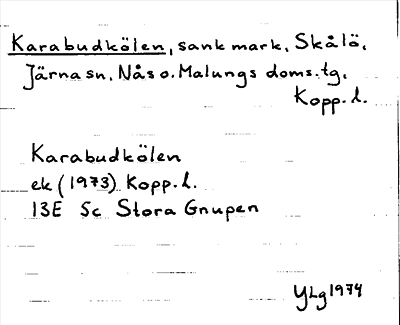 Karabudkölen, sank mark, Skålö,
Järna sn, Nås o. Malungs doms. tg,
Kopp. l.
Karabudkölen
ek (1973) Kopp. l.
13E 5c Stora Gnupen
YLg 1974